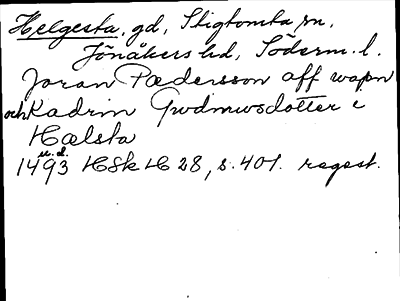 Helgesta, gd, Stigtomta sn,
Jönåkers hd, Söderm. l.
Joran Pædersson aff wapn
och Kadrin Gwdmwsdotter i
Hælsta
u.d.
1493 HSk H 28, s. 401. regest.